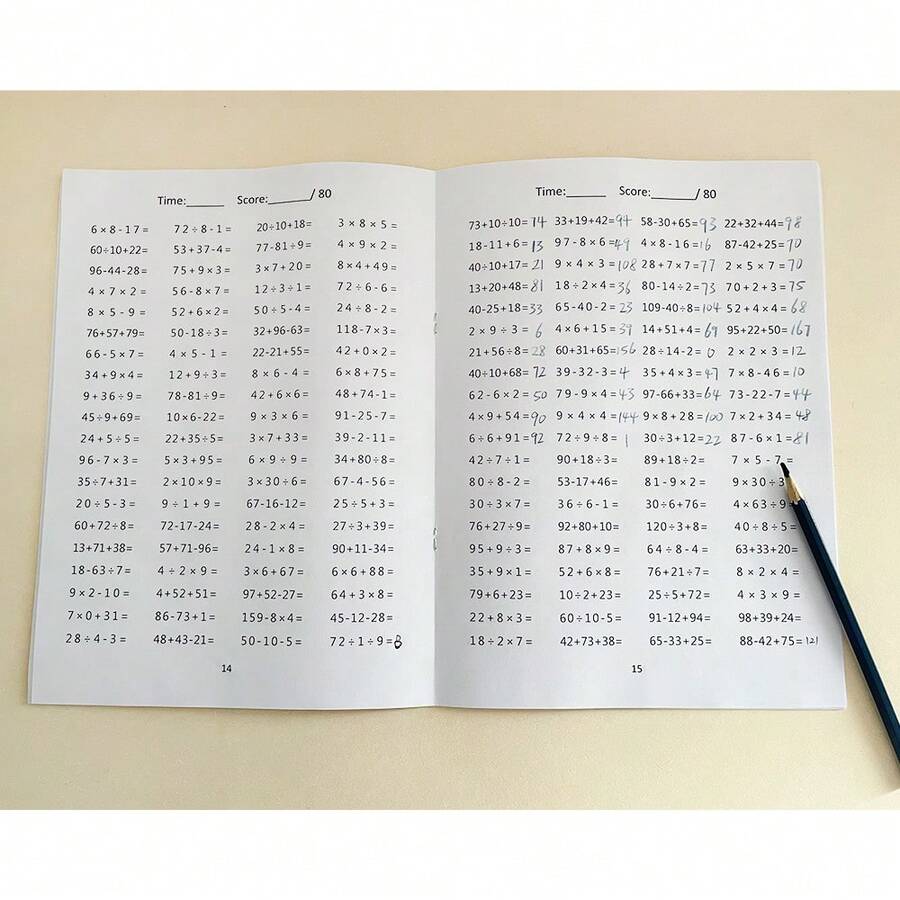 Time:______ Score:______/ 80
6×8-17= 72÷8-1= 20÷10+18= 3×8×5=
60÷10+22= 53+37-4= 77-81÷9= 4×9×2=
96-44-28= 75+9×3= 3×7+20= 8×4+49=
4×7×2= 56-8×7= 12÷3÷1= 72÷6-6=
8×5-9= 52+6×2= 50÷5-4= 24÷8-2=
76+57+79= 50-18÷3= 32+96-63= 118-7×3=
66-5×7= 4×5-1= 22-21+55= 42+0×2=
34+9×4= 12+9÷3= 8×6-4= 6×8+75=
9+36÷9= 78-81÷9= 42+6×6= 48+74-1=
45÷9+69= 10×6-22= 9×3×6= 91-25-7=
24+5÷5= 22+35÷5= 3×7+33= 39-2-11=
96-7×3= 5×3+95= 6×9÷9= 34+80÷8=
35÷7+31= 2×10×9= 3×30÷6= 67-4-56=
20÷5-3= 9÷1+9= 67-16-12= 25+5-3=
60+72÷8= 72-17-24= 28-2×4= 27÷3+39=
13+71+38= 57+71-96= 24-1×8= 90+11-34=
18-63÷7= 4÷2×9= 3×6+67= 6×6+88=
9×2-10= 4+52+51= 97+52-27= 64+3×8=
7×0+31= 86-73+1= 159-8×4= 45-12-28=
28÷4-3= 48+43-21= 50-10-5= 72÷1÷9=8
14
Time:______ Score:______/ 80
73+10÷10=74 33+19+42=94 58-30+65=93 22+32+44=98
18-11+6=13 97-8×6=49 4×8-16=16 87-42+25=70
40÷10+17=21 9×4×3=108 28+7×7=77 2×5×7=70
13+20+48=81 18÷2×4=36 80-14÷2=73 70+2+3=75
40-25+18=33 65-40-2=23 109-40÷8=104 52+4×4=68
2×9÷3=6 4×6+15=39 14+51+4=69 95+22+50=167
21+56÷8=28 60+31+65=156 28÷14-2=0 2×2×3=12
40÷10+68=72 39-32-3=4 35+4×3=47 7×8-46=10
62-6×2=50 79-9×4=43 97-66+33=64 73-22-7=44
4×9+54=90 9×4×4=144 9×8+28=100 7×2+34=48
6÷6+91=92 72÷9÷8=1 30÷3+12=22 87-6×1=81
42÷7÷1= 90+18÷3= 89+18÷2= 7×5-7=
80÷8-2= 53-17+46= 81-9×2= 9×30÷3
30÷3×7= 36÷6-1= 30÷6+76= 4×63÷9
76+27÷9= 92+80+10= 120÷3+8= 40÷8÷5=
95+9÷3= 87+8×9= 64÷8-4= 63+33+20=
35+9×1= 52+6×8= 76+21÷7= 8×2×4=
79+6+23= 10÷2+23= 25÷5+72= 4×3×9=
22+8×3= 60÷10-5= 91-12+94= 98+39+24=
18÷2×7= 42+73+38= 65-33+25= 88-42+75=121
15